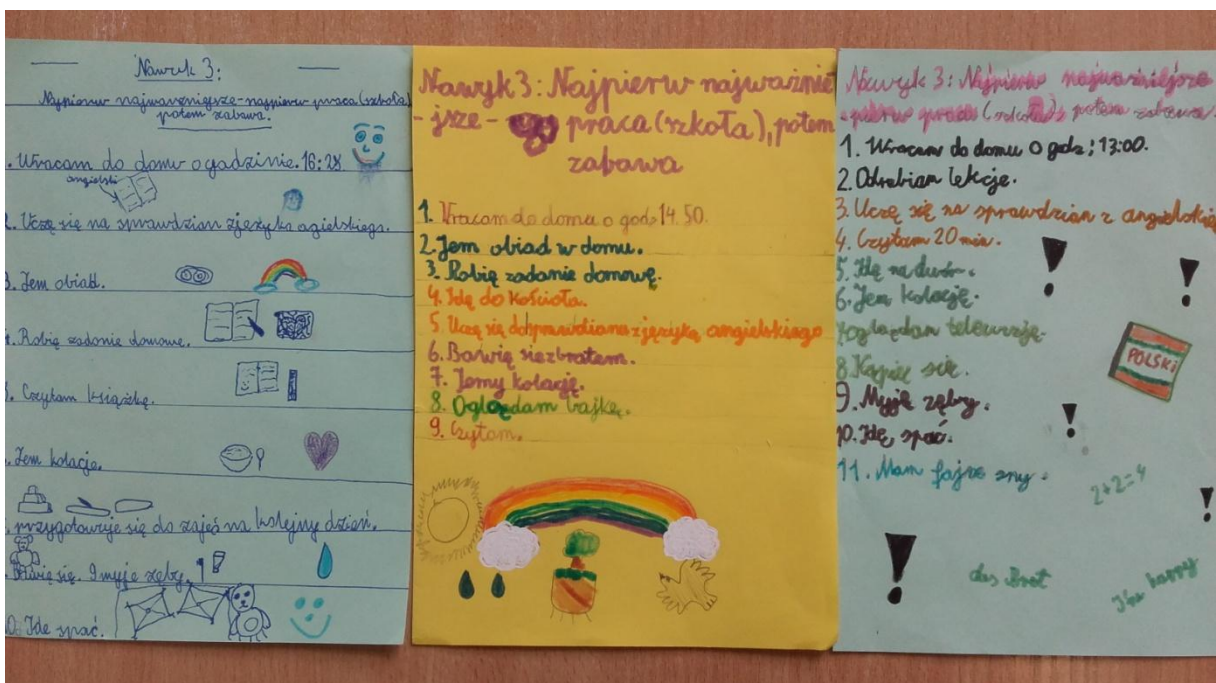 Nawyk 3:
Najpierw najważniejsze-najpierw praca (szkoła)
potem zabawa.
. Wracam do domu o godzinie. 16:28
angielski
2. Uczę się na sprawdzian z języka agielskiego.
3. Jem obiad.
4. Robię zadanie domowe.
. Czytam książkę.
. Jem kolację.
. przygotowuje się do zajęć na kolejny dzień.
. Bawię się. I myje zęby.
0. Idę spać.
Nawyk 3: Najpierw najważnie
- jsze - praca (szkoła), potem
zabawa
1. Wracam do domu o god. 14.50.
2. Jem obiad w domu.
3. Robię zadanie domowę.
4. Idę do Kościoła.
5. Uczę się do sprawdiana z języka angielskiego
6. Bawię się z bratem.
7. Jemy kolację.
8. Oglądam bajkę.
9. Czytam.
Nawyk 3: Najpierw najważniejsze
praca (szkoła), potem zabawa.
1. Wracam do domu o godz; 13:00.
2. Odrabiam lekcje.
3. Uczę się na sprawdzian z angielskie
4. Czytam 20 min.
5. Idę na dwór.
6. Jem kolację.
7 oglądam telewizję.
8. Kąpię się.
9. Myję zęby.
10. Idę spać.
11. Mam fajne sny.
POLSKI
2+2=4
das Brot
I'm happy